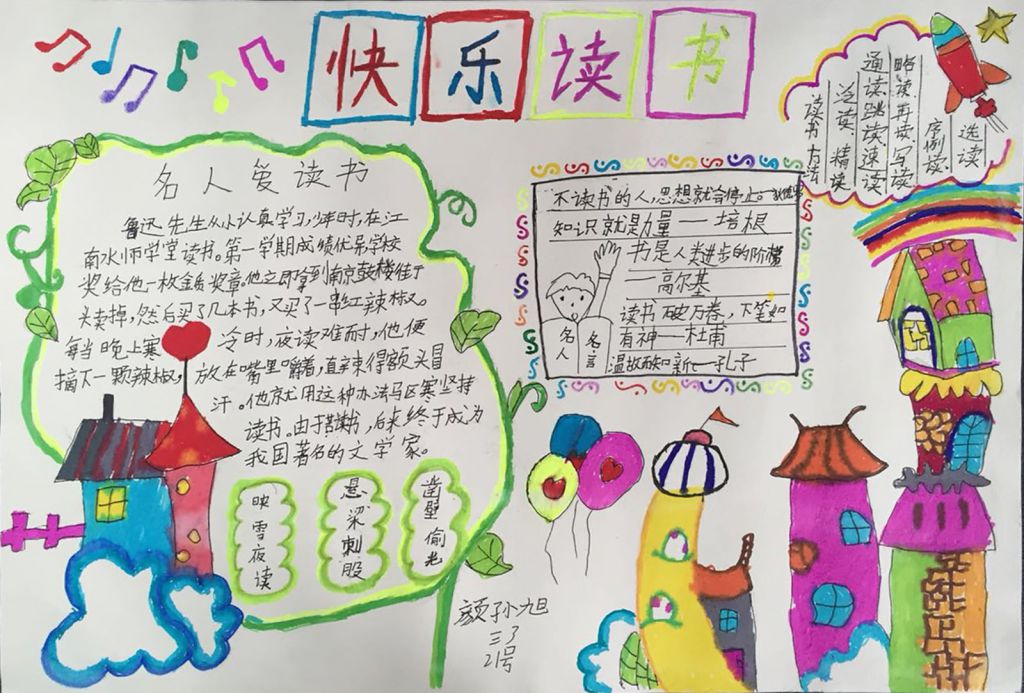 快乐读书
名人爱读书
鲁迅先生从小认真学习,少年时,在江
南水师学堂读书。第一学期成绩优异学校
奖给他一枚金质奖章。他立即拿到南京鼓楼街
头卖掉,然后买了几本书,又买了一串红辣椒。
每当晚上寒冷时,夜读难耐,他便
摘下一颗辣椒,放在嘴里嚼着,直辣得额头冒
汗。他就用这种办法驱寒坚持
读书。由于苦读书,后来终于成为
我国著名的文学家。
映雪夜读
悬梁刺股
凿壁偷光
颜孙旭
三
21号
不读书的人,思想就会停止。
知识就是力量一培根
书是人类进步的阶梯
一高尔基
读书破万卷,下笔如
有神一杜甫
温故而知新一孔子
名人
名言
读书方法
泛读 精读
通读跳读速读
略读再读写读
序例读
选读